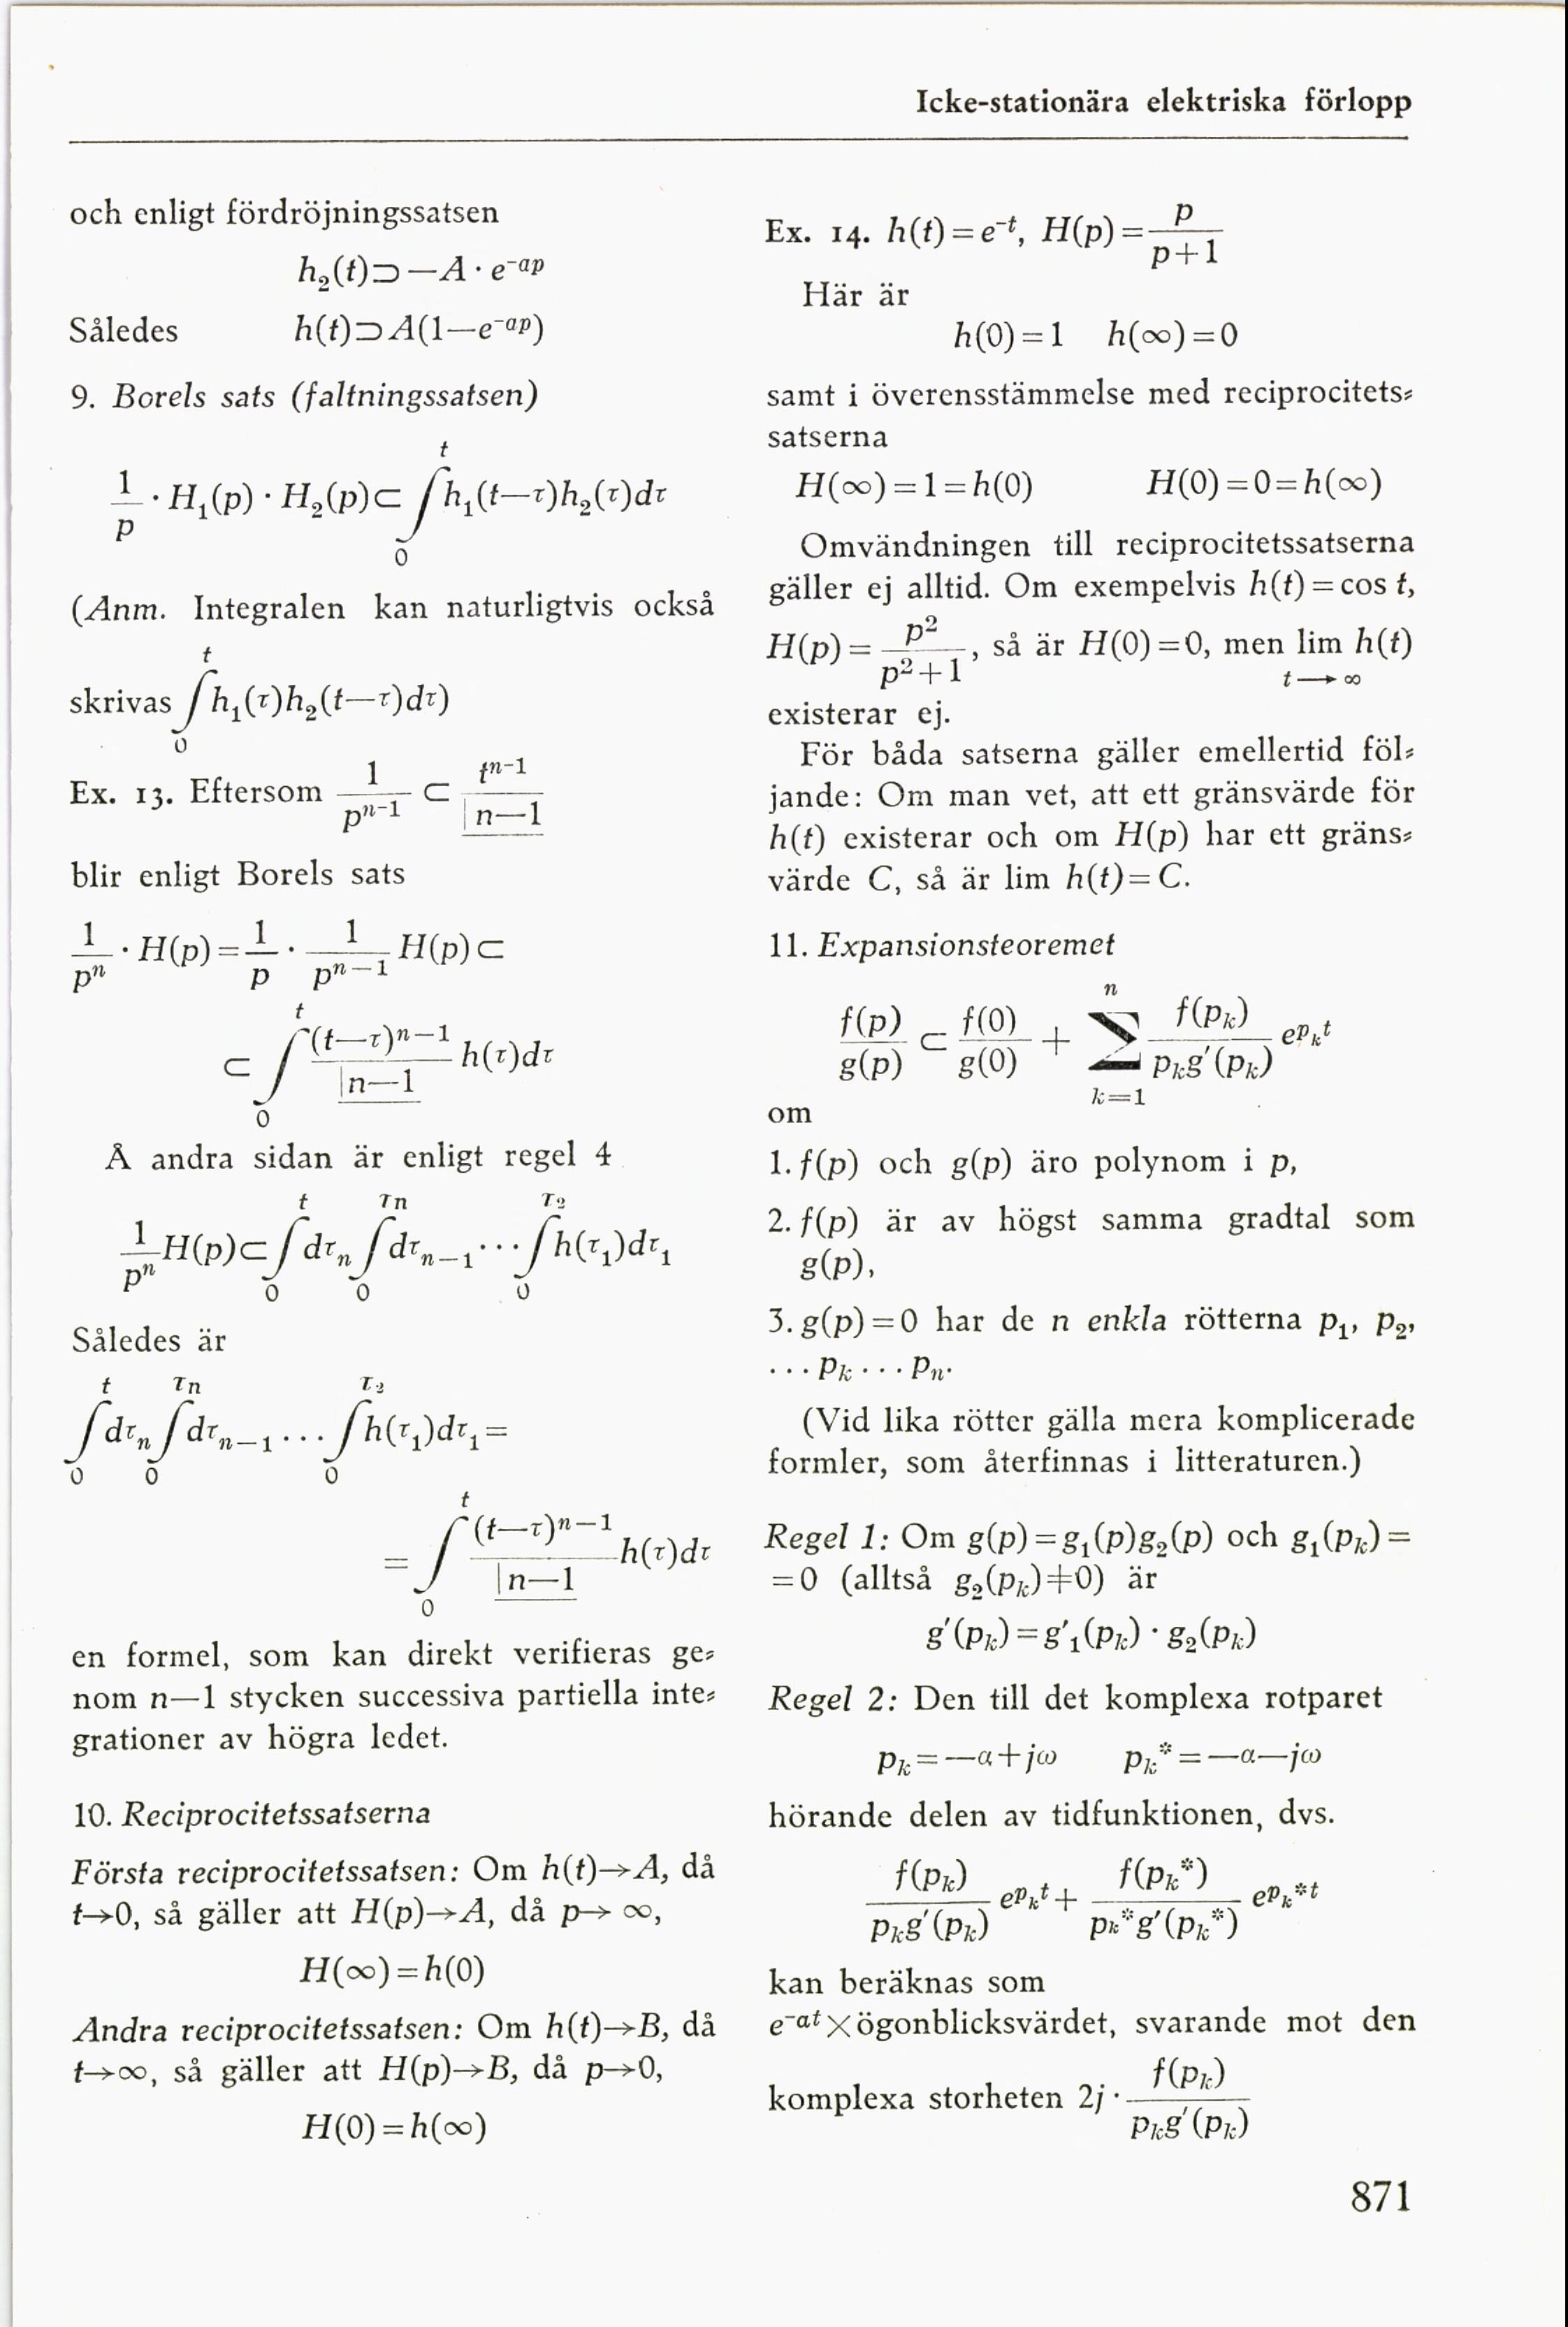 Icke-stationära elektriska förlopp
och enligt fördröjningssatsen
h₂(t)⊃—A · e⁻ᵃᵖ
Således h(t)⊃A(1—e⁻ᵃᵖ)
9. Borels sats (faltningssatsen)
1/p · H₁(p) · H₂(p)⊂ ∫₀ᵗ h₁(t—τ)h₂(τ)dτ
(Anm. Integralen kan naturligtvis också
skrivas ∫₀ᵗ h₁(τ)h₂(t—τ)dτ)
Ex. 13. Eftersom 1/pⁿ⁻¹ ⊂ tⁿ⁻¹/|n—1
blir enligt Borels sats
1/pⁿ · H(p) = 1/p · 1/pⁿ⁻¹ H(p)⊂
⊂ ∫₀ᵗ (t—τ)ⁿ⁻¹/|n—1 h(τ)dτ
Å andra sidan är enligt regel 4
1/pⁿ H(p)⊂ ∫₀ᵗ dτₙ ∫₀^τₙ dτₙ₋₁ ··· ∫₀^τ₂ h(τ₁)dτ₁
Således är
∫₀ᵗ dτₙ ∫₀^τₙ dτₙ₋₁ ... ∫₀^τ₂ h(τ₁)dτ₁ =
= ∫₀ᵗ (t—τ)ⁿ⁻¹/|n—1 h(τ)dτ
en formel, som kan direkt verifieras ge-
nom n—1 stycken successiva partiella inte-
grationer av högra ledet.
10. Reciprocitetssatserna
Första reciprocitetssatsen: Om h(t)→A, då
t→0, så gäller att H(p)→A, då p→ ∞,
H(∞) = h(0)
Andra reciprocitetssatsen: Om h(t)→B, då
t→∞, så gäller att H(p)→B, då p→0,
H(0) = h(∞)
Ex. 14. h(t) = e⁻ᵗ, H(p) = p/(p+1)
Här är
h(0) = 1 h(∞) = 0
samt i överensstämmelse med reciprocitets-
satserna
H(∞) = 1 = h(0) H(0) = 0 = h(∞)
Omvändningen till reciprocitetssatserna
gäller ej alltid. Om exempelvis h(t) = cos t,
H(p) = p²/(p²+1), så är H(0) = 0, men lim h(t)
t→∞
existerar ej.
För båda satserna gäller emellertid föl-
jande: Om man vet, att ett gränsvärde för
h(t) existerar och om H(p) har ett gräns-
värde C, så är lim h(t) = C.
11. Expansionsteoremet
f(p)/g(p) ⊂ f(0)/g(0) + Σₖ₌₁ⁿ f(pₖ)/(pₖg′(pₖ)) e^(pₖt)
om
1. f(p) och g(p) äro polynom i p,
2. f(p) är av högst samma gradtal som
g(p),
3. g(p) = 0 har de n enkla rötterna p₁, p₂,
··· pₖ ··· pₙ.
(Vid lika rötter gälla mera komplicerade
formler, som återfinnas i litteraturen.)
Regel 1: Om g(p) = g₁(p)g₂(p) och g₁(pₖ) =
= 0 (alltså g₂(pₖ)≠0) är
g′(pₖ) = g′₁(pₖ) · g₂(pₖ)
Regel 2: Den till det komplexa rotparet
pₖ = —α+jω pₖ* = —α—jω
hörande delen av tidfunktionen, dvs.
f(pₖ)/(pₖg′(pₖ)) e^(pₖt) + f(pₖ*)/(pₖ*g′(pₖ*)) e^(pₖ*t)
kan beräknas som
e^(-αt)×ögonblicksvärdet, svarande mot den
komplexa storheten 2j · f(pₖ)/(pₖg′(pₖ))
871